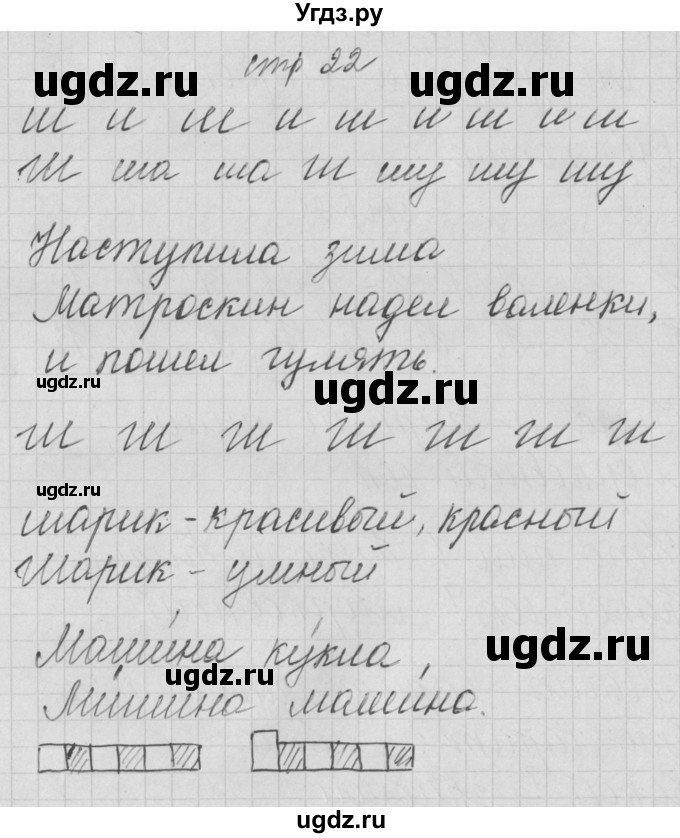 Угдз.ру
стр 22
ugdz.ru ugdz.ru
ш и ш и ш и ш и ш
Ш ша ша Ш шу шу шу
Наступила зима
Матроскин надел валенки,
и пошел гулять.
ugdz.ru ugdz.ru
Ш Ш Ш Ш Ш Ш Ш
ugdz.ru
шарик - красивый, красный
Шарик - умный
Маши́на ку́кла,
ugdz.ru ugdz.ru
Ми́шина маши́на.